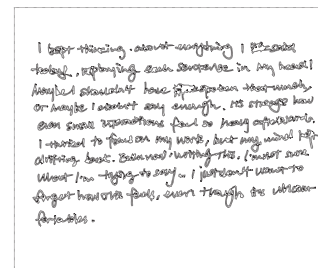 I kept thinking about everything I said
today, replaying each sentence in my head.
Maybe I shouldn't have spoken that much,
or maybe I didn't say enough. It's strange how
even small interactions feel so heavy afterwards.
I tried to focus on my work, but my mind kept
drifting back. Even now, writing this, I'm not sure
what I'm trying to say. I just don't want to
forget how this feels, even though it's uncomfortable.